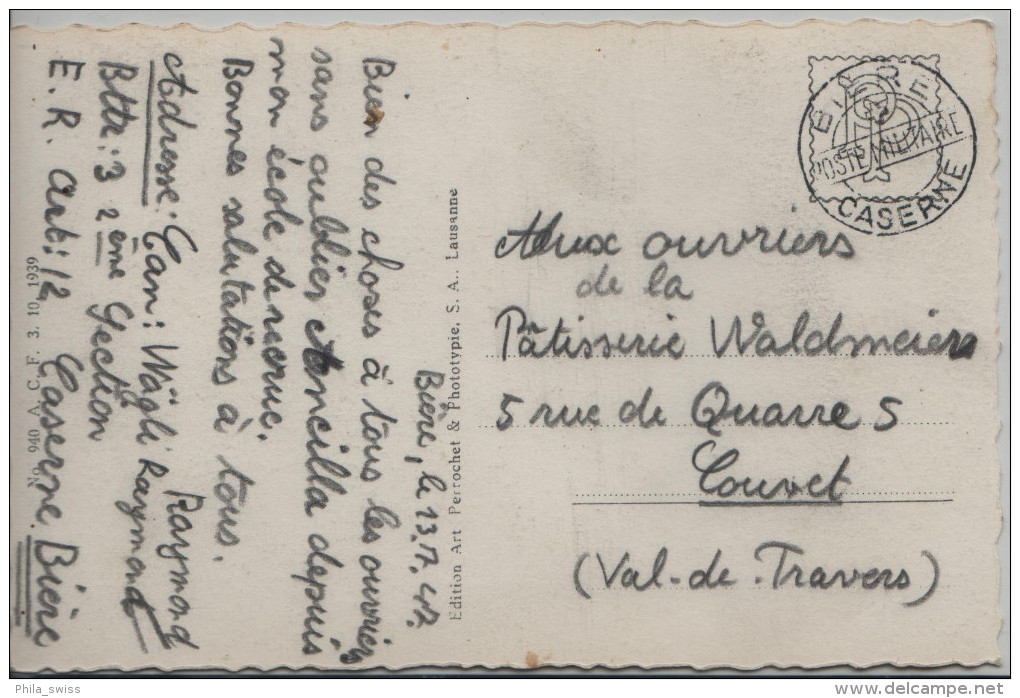 Bière, le 13.7.42.
Bien des choses à tous les ouvriers
sans oublier Ancilla depuis
mon école de recrue.
Bonnes salutations à tous.
Raymond
Adresse: Can: Wägli Raymond
Bttr: 3 2ème Section
E. R. art: 12 Caserne. Bière
No. 940 A. C. F. 3. 10. 1939
Edition Art Perrochet & Phototypie, S. A., Lausanne
BIÈRE
POSTE MILITAIRE
CASERNE
Aux ouvriers
de la
Pâtisserie Waldmeier
5 rue de Quarre 5
Couvet
(Val-de-Travers)
Phila_swiss
www.delcampe.net